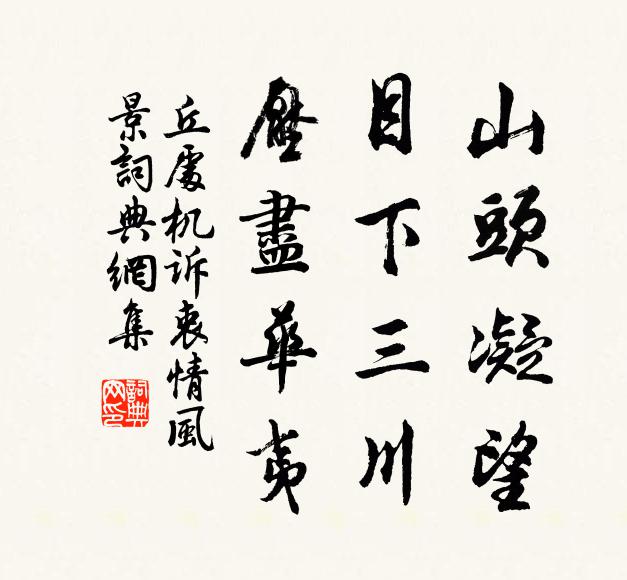 山頭凝望
目下三川
壓盡華夷
丘處机诉衷情風
景詞典網集
詞典網印